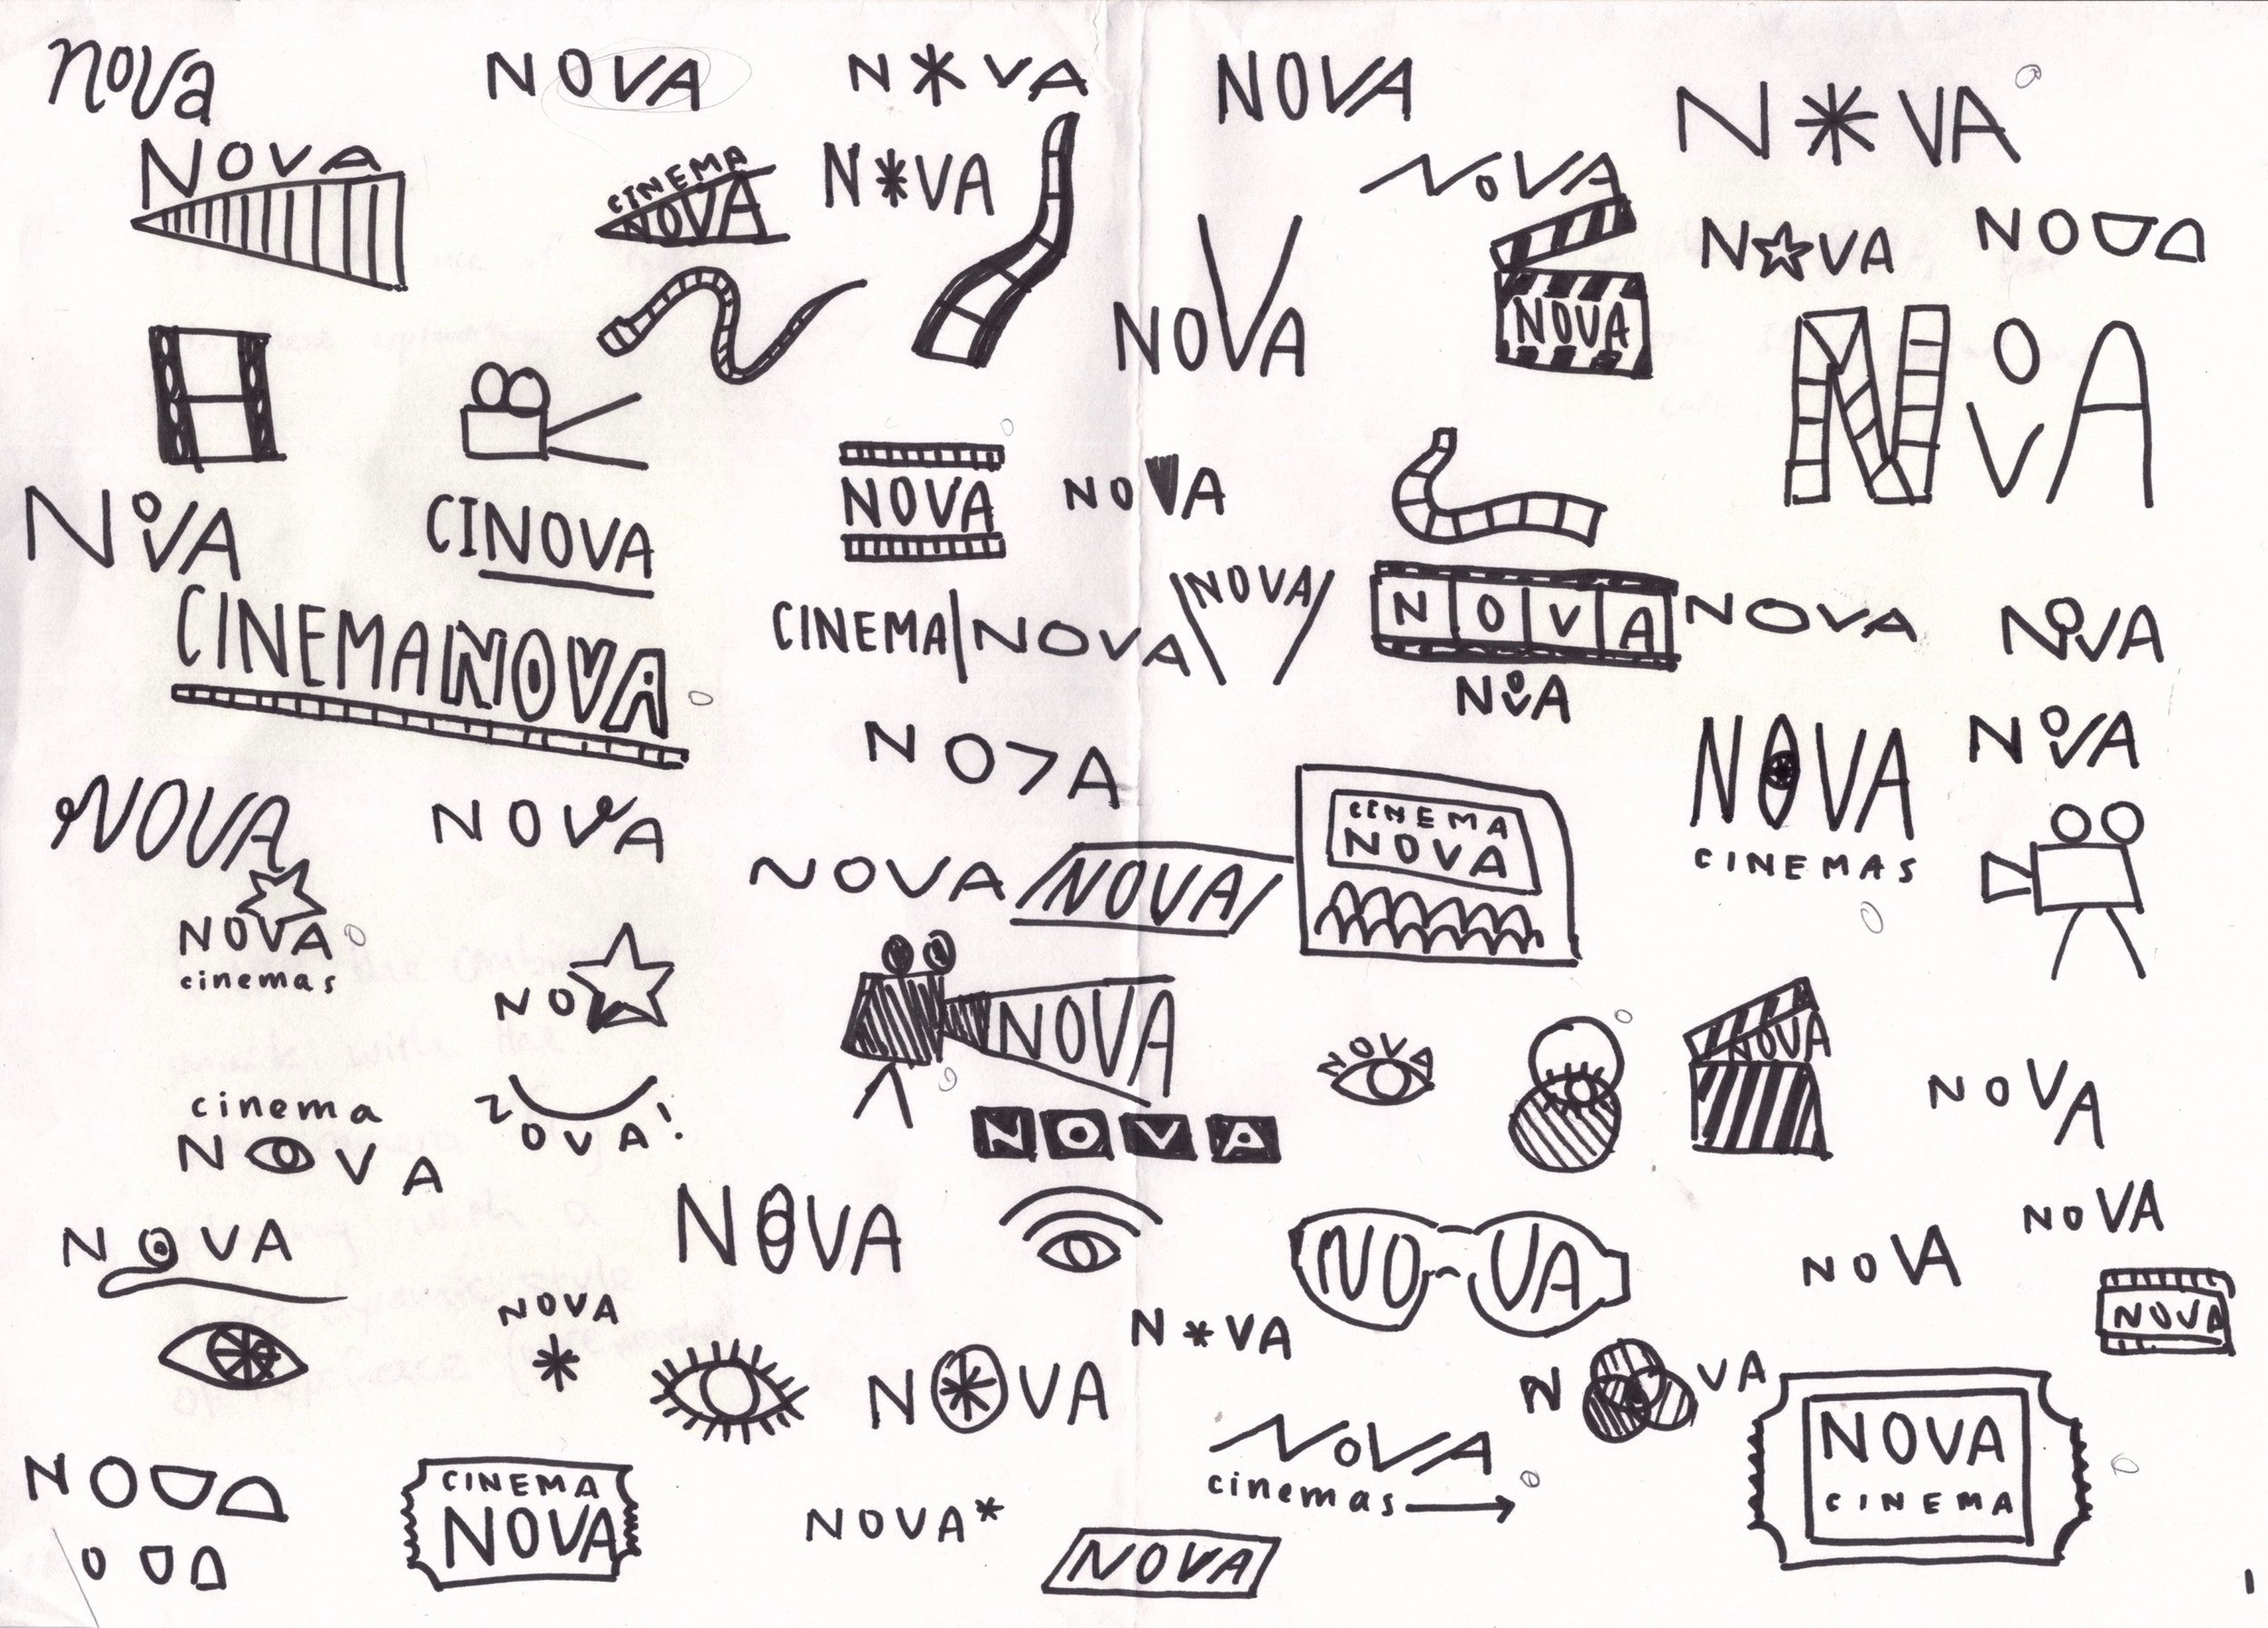 nova
NOVA
N*VA
NOVA
N*VA
NOVA
CINEMA
NOVA
N*VA
NOVA
NOVA
N☆VA
NOVA
NOVA
NOVA
NOVA
NOVA
CINOVA
NOVA
NOVA
CINEMANOVA
CINEMA|NOVA
NOVA
NOVA
NOVA
NOVA
NOVA
NOVA
NOVA
CINEMAS
NOVA
NOVA
NOVA
NOVA
NOVA
NOVA
CINEMA
NOVA
NOVA
cinemas
NO
NOVA
NOVA
NOVA
NOVA
cinema
NOVA
NOVA!
NOVA
NOVA
NOVA
NO-VA
NOVA
NOVA
NOVA
NOVA
*
N*VA
N*VA
N VA
NOVA
cinemas
NOVA
CINEMA
NOVA
CINEMA
NOVA
NOVA*
NOVA